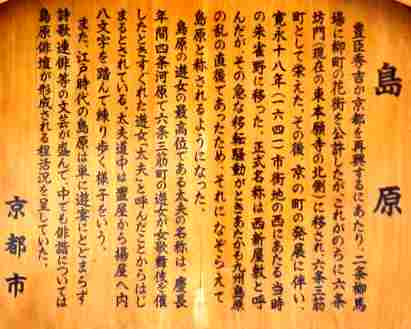 島原
豊臣秀吉が京都を再興するにあたり、二条柳馬
場に柳町の花街を公許したが、これがのちに六条
坊門(現在の東本願寺の北側)に移され、六条三筋
町として栄えた。その後、京の町の発展に伴い、
寛永十八年(一六四一)市街地の西にあたる当時
の朱雀野に移った。正式名称は西新屋敷と呼
んだが、その急な移転騒動がときあたかも九州島原
の乱の直後であったため、それになぞらえて
島原と称されるようになった。
島原の遊女の最高位である太夫の名称は、慶長
年間四条河原で六条三筋町の遊女が女歌舞伎を催
したときすぐれた遊女を「太夫」と呼んだことからはじ
まるとされている。太夫道中は置屋から揚屋へ内
八文字を踏んで練り歩く様子をいう。
また、江戸時代の島原は単に遊宴にとどまらず
詩歌連俳等の文芸が盛んで、中でも俳諧については
島原俳壇が形成される程活況を呈していた。
京都市